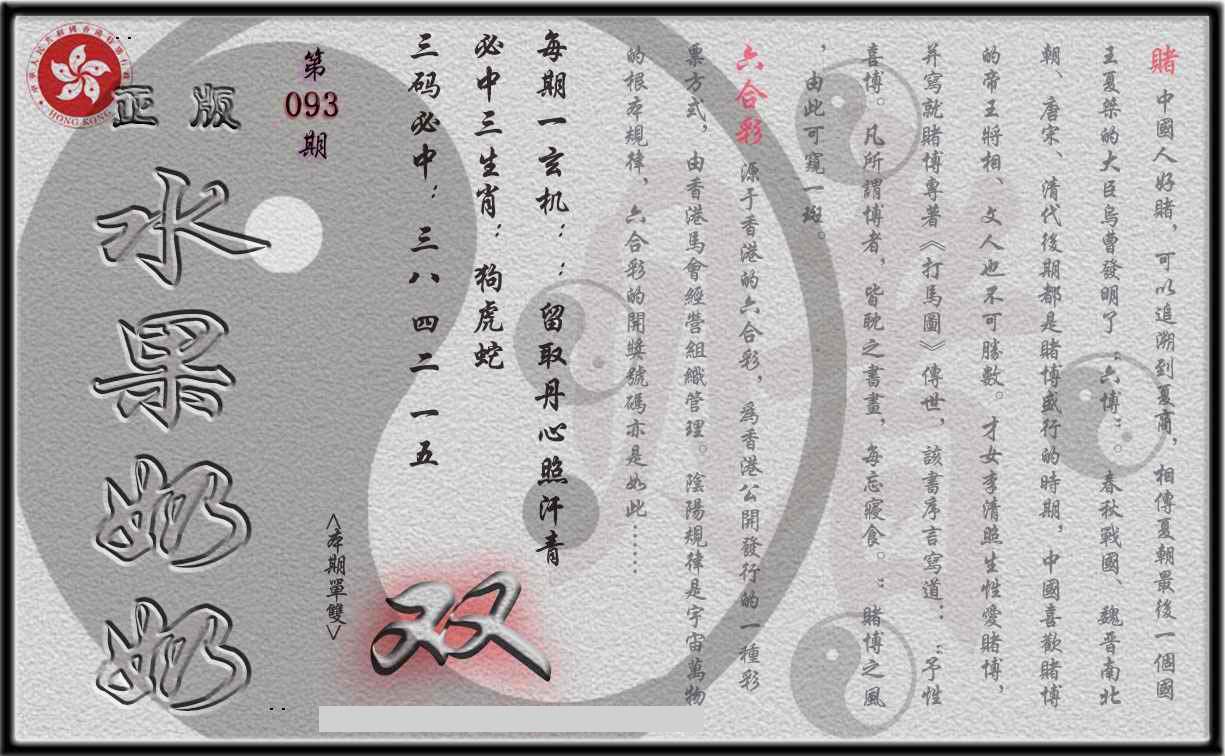 賭 中國人好賭，可以追溯到夏商，相傳夏朝最後一個國
王夏桀的大臣烏曹發明了“六博”。春秋戰國、魏晋南北
朝、唐宋、清代後期都是賭博盛行的時期，中國喜歡賭博
的帝王將相、文人也不可勝數。才女李清照生性愛賭博，
并寫就賭博專著《打馬圖》傳世，該書序言寫道：“予性
喜博。凡所謂博者，皆耽之書晝，每忘寢食。”賭博之風
，由此可窺一斑。
六合彩 源于香港的六合彩，爲香港公開發行的一種彩
票方式，由香港馬會經營組織管理。陰陽規律是宇宙萬物
的根本規律、六合彩的開獎號碼亦是如此……
每期一玄机：：留取丹心照汗青
必中三生肖：狗虎蛇
三码必中：三八 四二 一五
第093期
<本期單雙>
双
正版
水果奶奶
HONG KONG